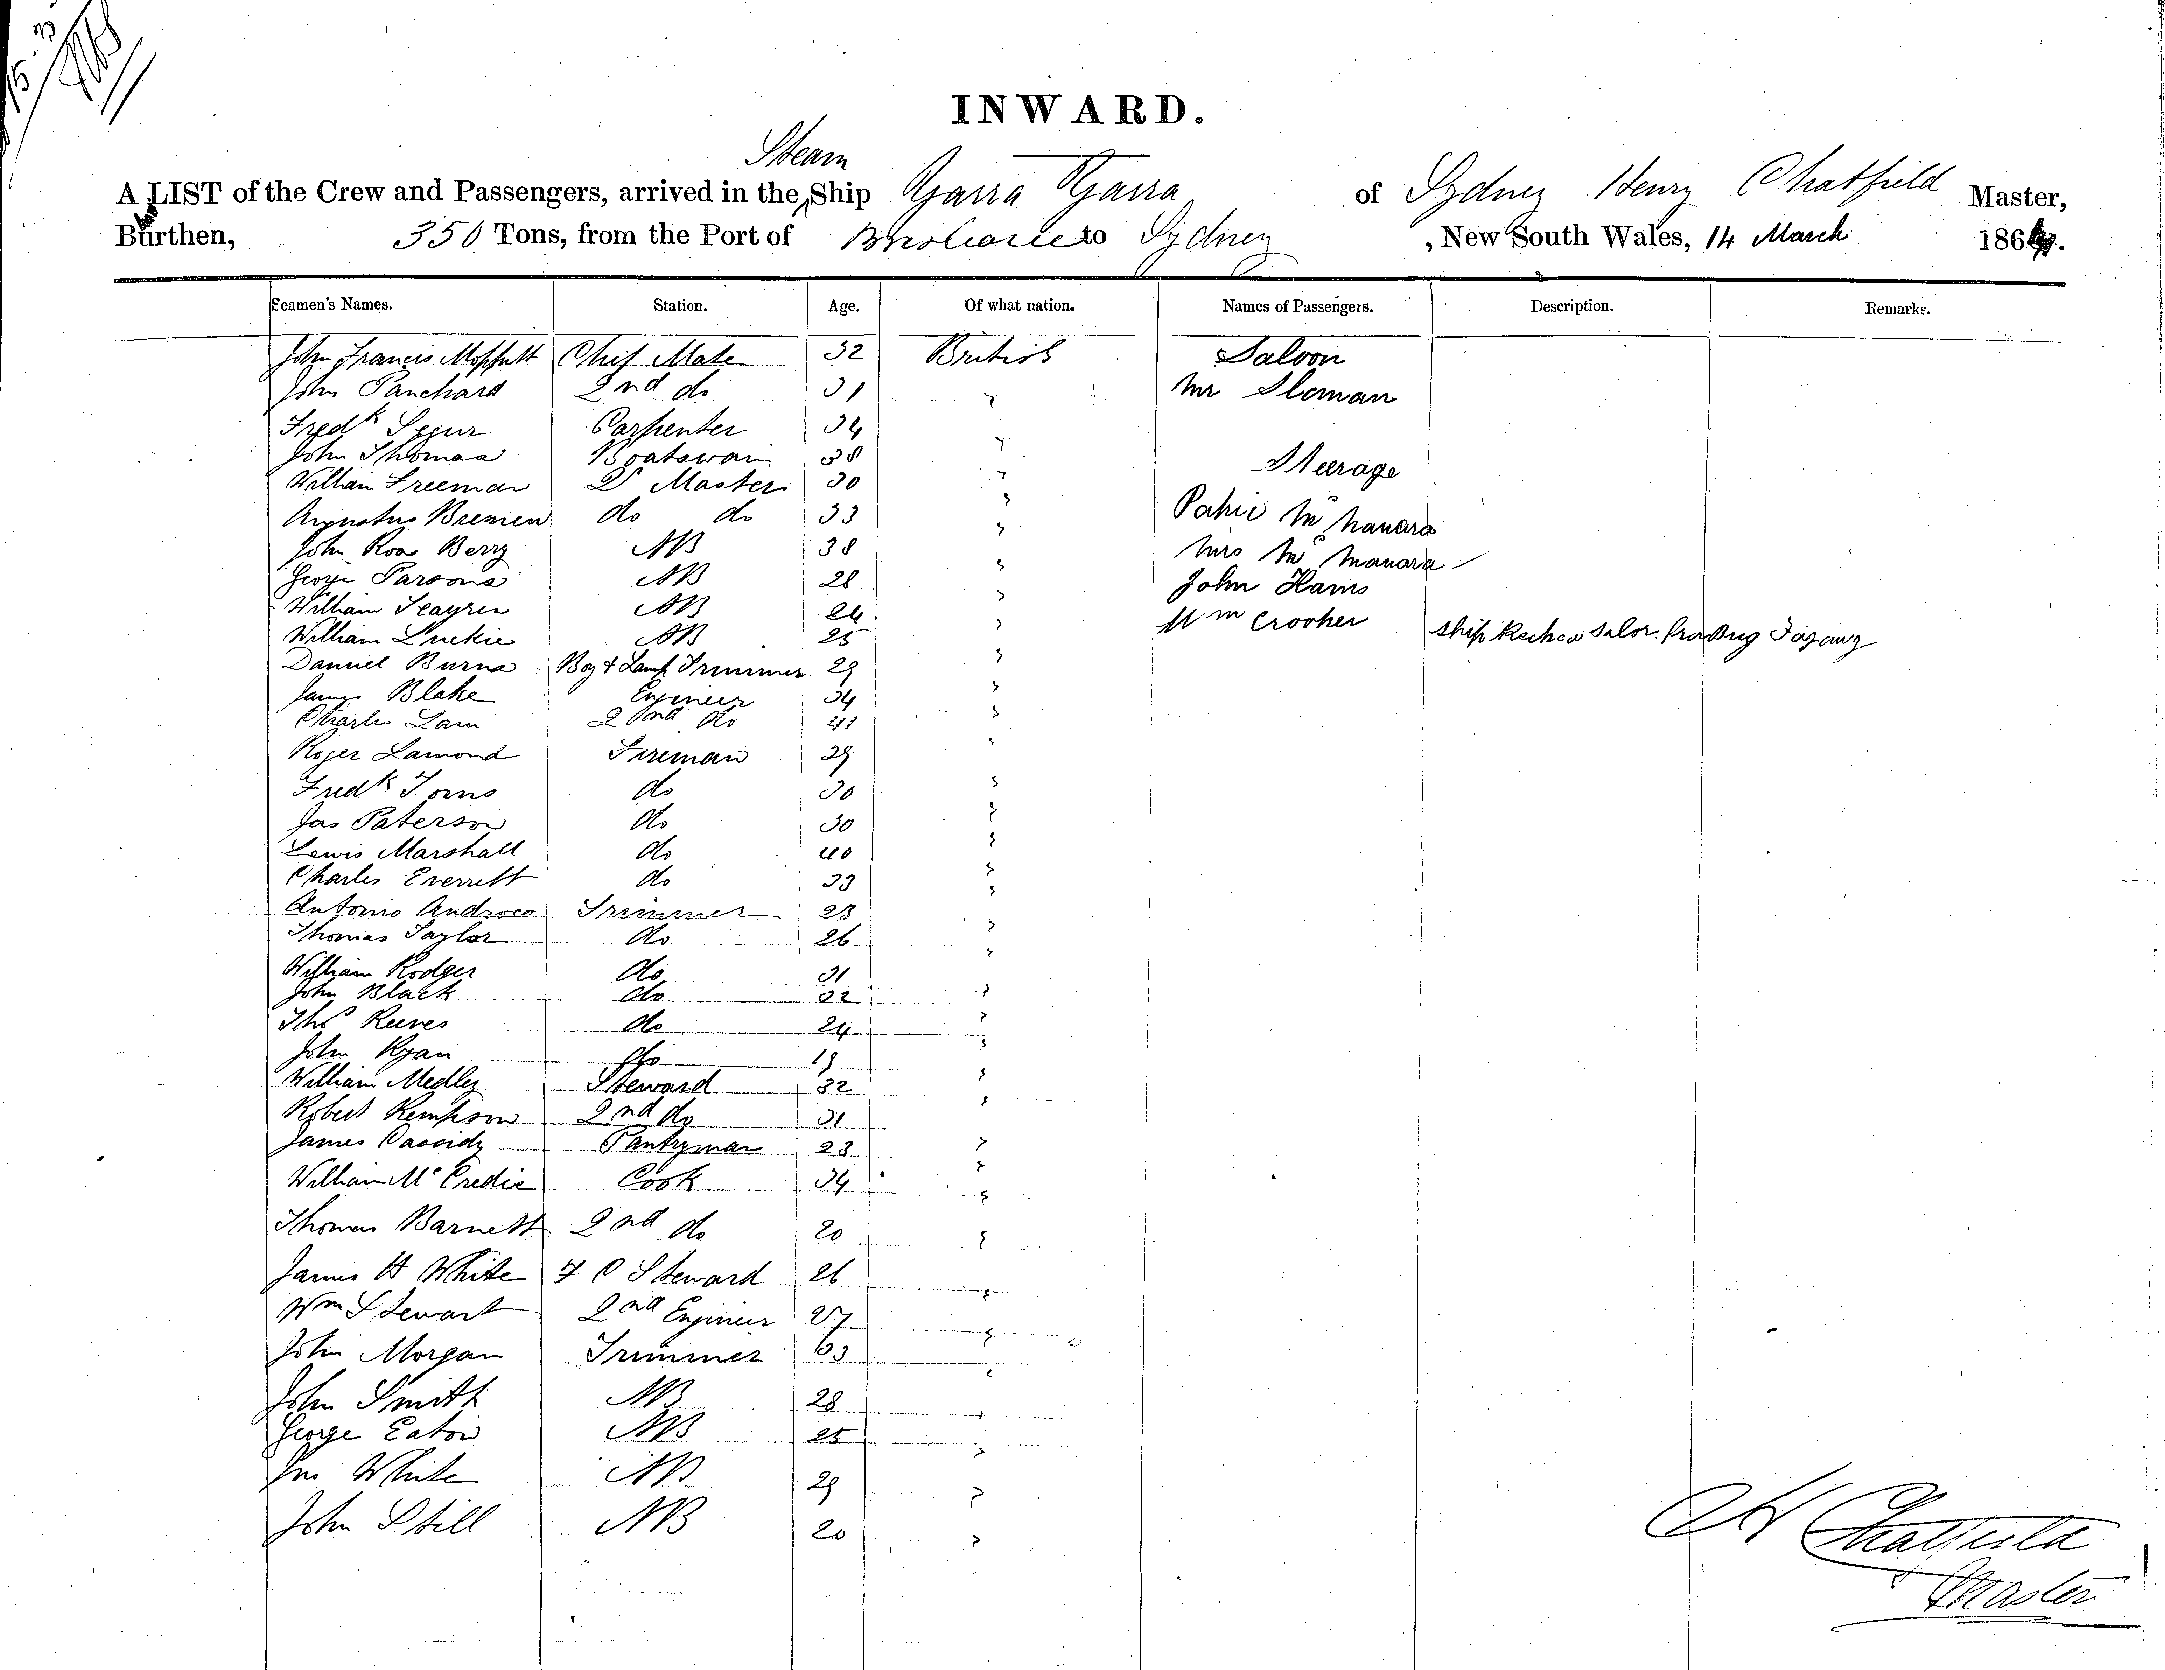 INWARD.
Steam
A LIST of the Crew and Passengers, arrived in the Ship Yarra Yarra of Sydney Henry Chatfield Master,
Burthen, 350 Tons, from the Port of Brisbane to Sydney , New South Wales, 14 March 186
Seamen's Names. Station. Age. Of what nation. Names of Passengers. Description. Remarks.
John Francis Moffatt Chief Mate 32 British Saloon
John Panchard 2nd do 31 " Mr Sloman
Fredk Carpenter 34 "
John Thomas Boatswain 38 " Steerage
William Freeman Qr Master 30 "
Augustus Bremen do do 33 " Mc
John Ross Berry AB 38 " Mrs Mc
George Parsons AB 28 " John Harris
William AB 24 " Wm Crooker Ship
William Luckie AB 25 "
Daniel Burns Boy & Lamp Trimmer 29 "
James Blake Engineer 34 "
Charles Lam 2nd do 41 "
Roger Lamond Fireman 29 "
Fredk Toms do 30 "
Jas Paterson do 30 "
Lewis Marshall do 40 "
Charles Everrett do 33 "
Antonio Trimmer 23 "
Thomas Taylor do 26 "
William Rodger do 31 "
John Black do 32 "
Thos Reeves do 24 "
John Ryan do 19 "
William Medley Steward 32 "
Robert Kempson 2nd do 31 "
James Cassidy Pantryman 23 "
William McCredie Cook 34 "
Thomas Barnett 2nd do 20 "
James H White F C Steward 26 "
Wm Stewart 2nd Engineer 27 "
John Morgan Trimmer "
John Smith AB 28 "
George Eaton AB 25 "
White AB 29 "
John Still AB 20 "
H Chatfield
Master